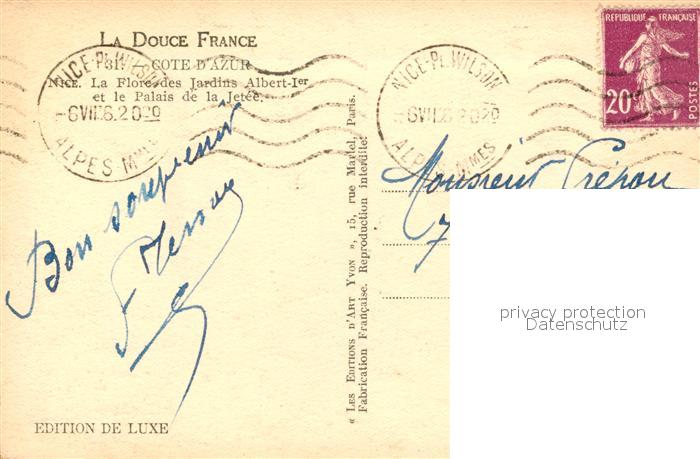 LA DOUCE FRANCE
COTE D'AZUR
NICE. La Flore des Jardins Albert-Ier
et le Palais de la Jetée.
NICE-Pl. WILSON
ALPES Mmes
Bon souvenir
EDITION DE LUXE
« LES EDITIONS D'ART YVON », 15, rue Martel, Paris.
Fabrication Française. Reproduction interdite.
NICE-Pl. WILSON
ALPES Mmes
RÉPUBLIQUE FRANÇAISE
20c
POSTES
Monsieur
7
privacy protection
Datenschutz